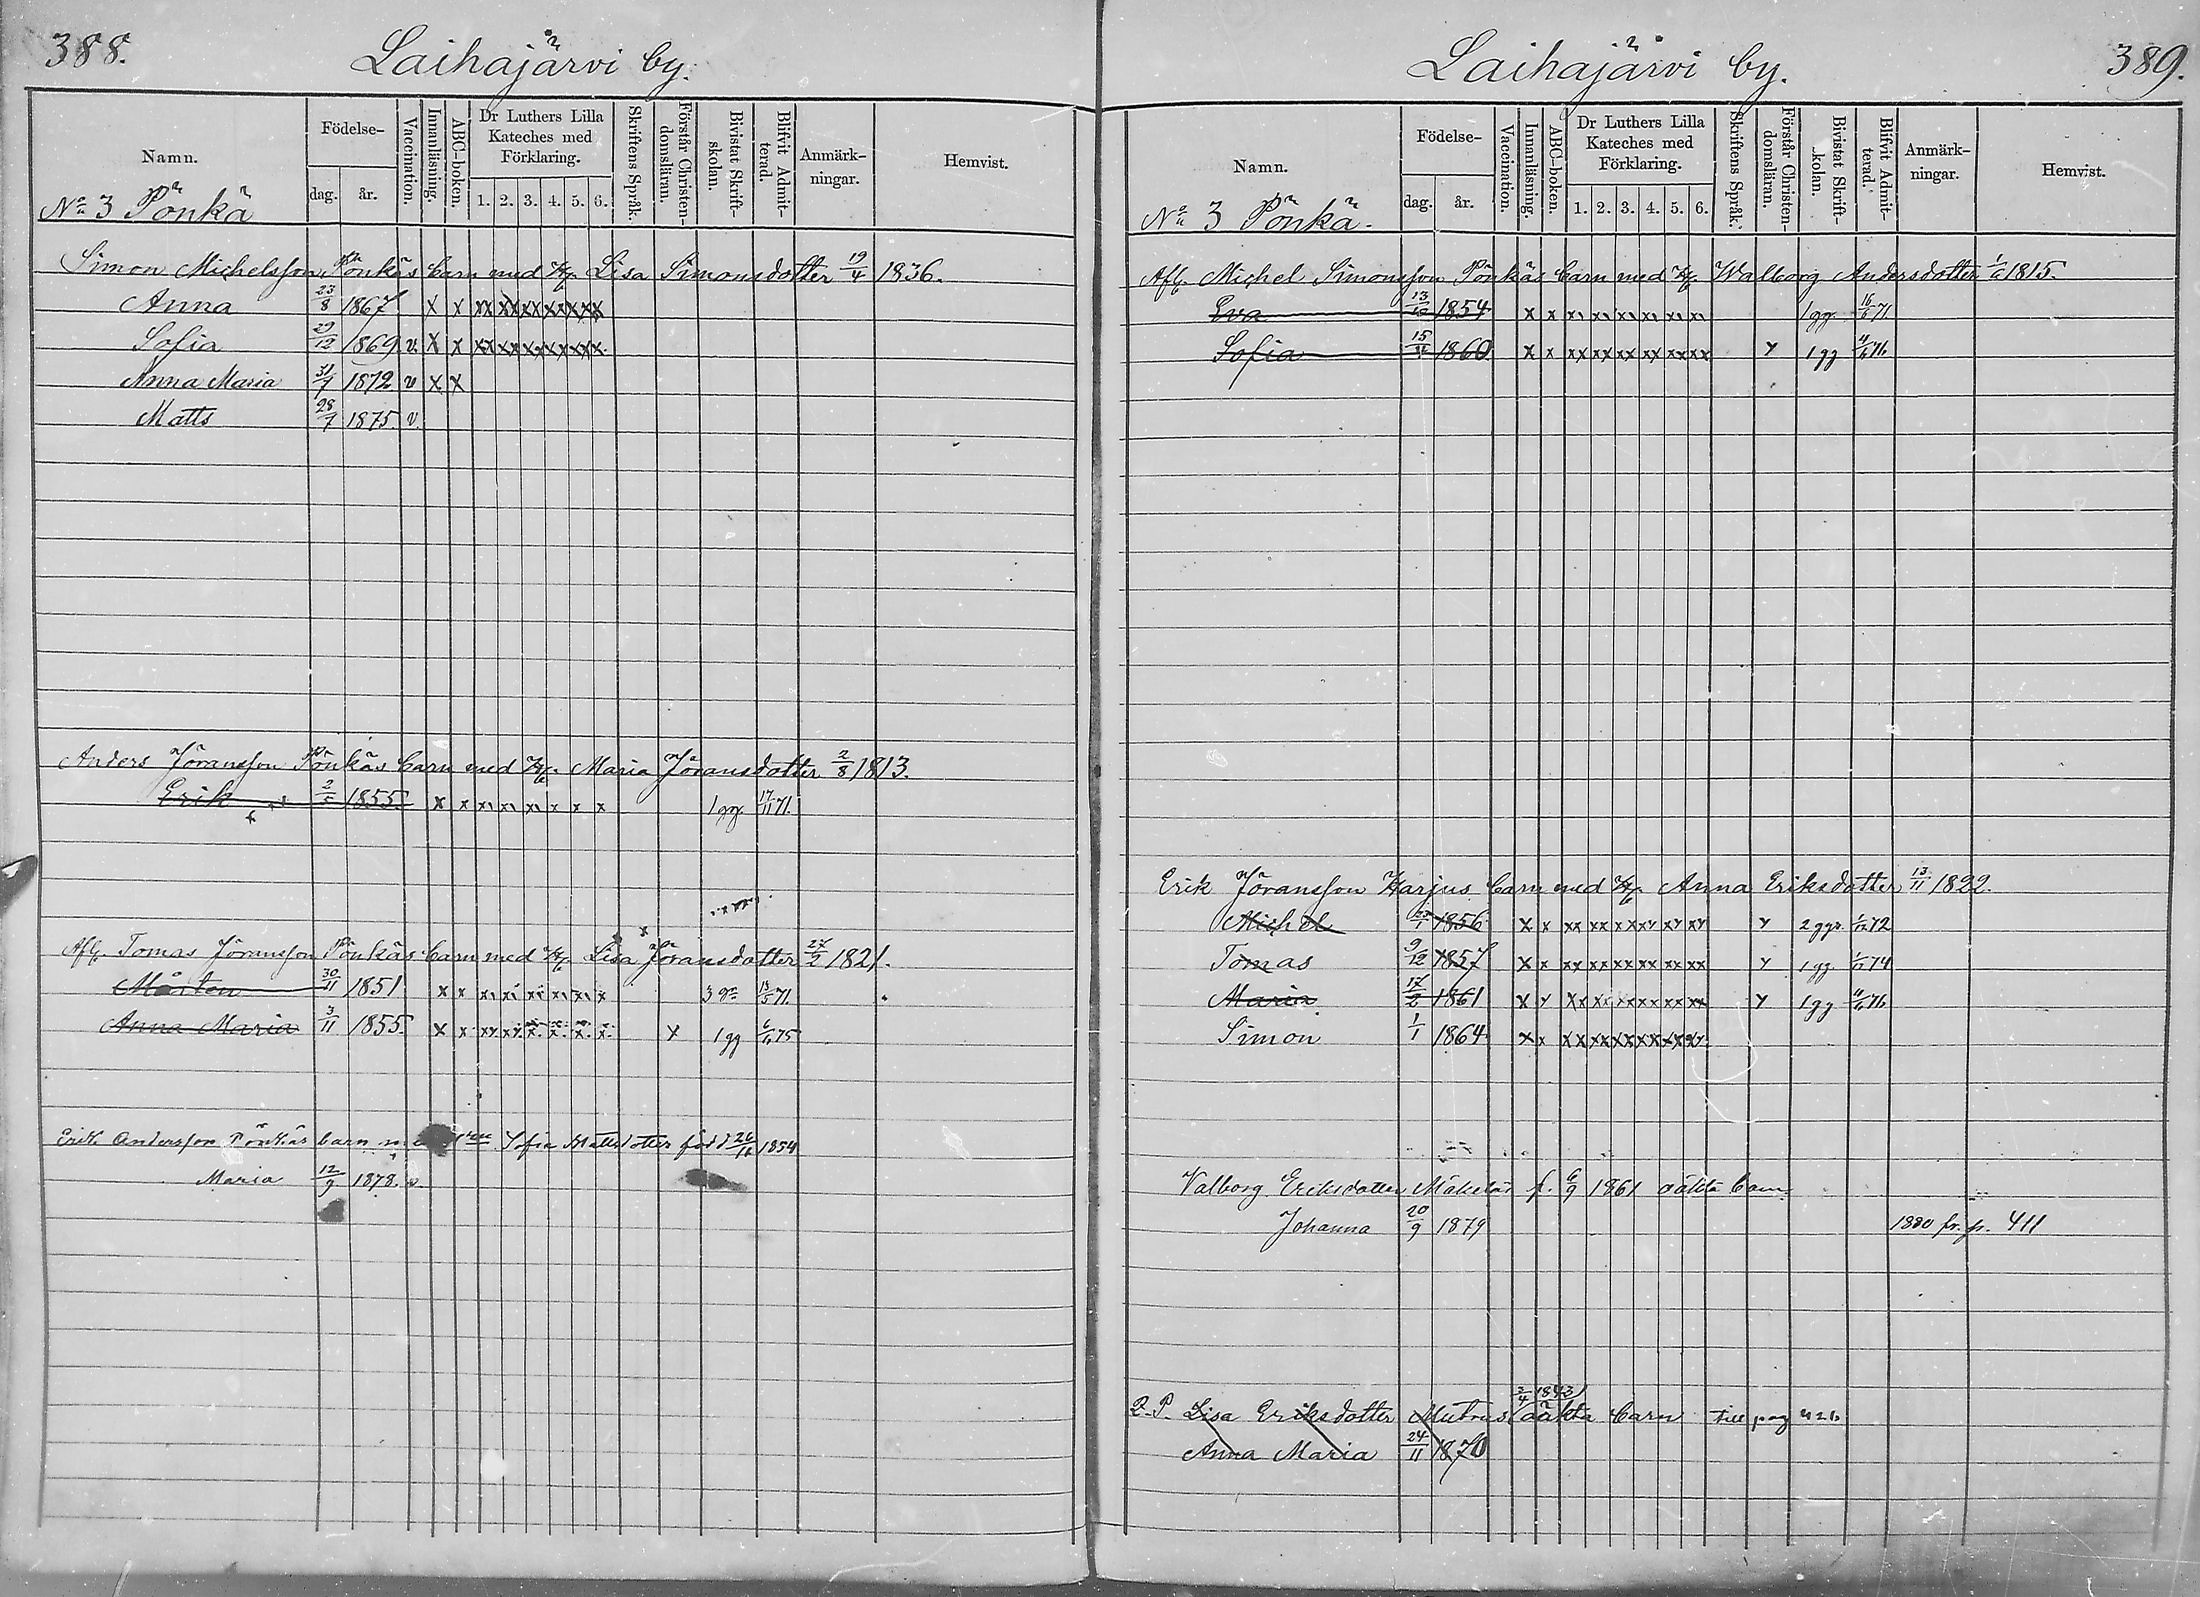 388.
Laihajärvi by.
Namn.
Födelse-
dag. år.
Vaccination.
Innanläsning.
ABC-boken.
Dr Luthers Lilla
Kateches med
Förklaring.
1. 2. 3. 4. 5. 6.
Skriftens Språk.
Förstår Christen-
domsläran.
Bivistat Skrift-
skolan.
Blifvit Admit-
terad.
Anmärk-
ningar.
Hemvist.
No 3 Pönkä
Simon Michelsson Pönkäs barn med H. Lisa Simonsdotter 19/4 1836.
Anna 23/8 1867 x x xx xx xx xx xx xx
Sofia 29/12 1869 v. x x xx xx xx xx xx xx
Anna Maria 31/7 1872 v x x
Matts 28/7 1875 v.
Anders Jöransson Pönkäs barn med H. Maria Jöransdotter 2/8 1813.
Erik 1855 x x x x x x x x 1 gg. 17/11 71.
Afl. Tomas Jöransson Pönkäs barn med H. Lisa Jöransdotter 27/2 1821.
Mårten 30/11 1851 x x x x x x x x 71.
Anna Maria 3/11 1855 x x xx xx x x x x x 1 gg 75
Erik Andersson Pönkäs barn Sofia Mattsdotter född 1854
Maria 12/9 1878. v.
389.
Laihajärvi by.
Namn.
Födelse-
dag. år.
Vaccination.
Innanläsning.
ABC-boken.
Dr Luthers Lilla
Kateches med
Förklaring.
1. 2. 3. 4. 5. 6.
Skriftens Språk.
Förstår Christen-
domsläran.
Bivistat Skrift-
kolan.
Blifvit Admit-
terad.
Anmärk-
ningar.
Hemvist.
No 3 Pönkä.
Afl. Michel Simonsson Pönkäs barn med H. Walborg Andersdotter 1/6 1815.
Eva 13/10 1854 x x xx xx xx xx xx xx 1 gg. 16/6 71
Sofia 1860 x x xx xx xx xx xx xx y 1 gg 11/6 76
Erik Jöransson Harjus barn med H. Anna Eriksdotter 13/11 1822.
Michel 1856 x x xx xx xx xx xx xx y 2 ggr. 72
Tomas 9/12 1857 x x xx xx xx xx xx xx y 1 gg. 74
Maria 17/2 1861 x y xx xx xx xx xx xx y 1 gg 11/6 76
Simon 1/1 1864 x x xx xx xx xx xx xx
Valborg Eriksdotter Mäkeläs f. 6/9 1861 oäkta barn
Johanna 20/9 1879 1880 fr. p. 411
2/4 1843
Q. P. Lisa Eriksdotter Mutkas oäkta barn till pag 426
Anna Maria 24/11 1870